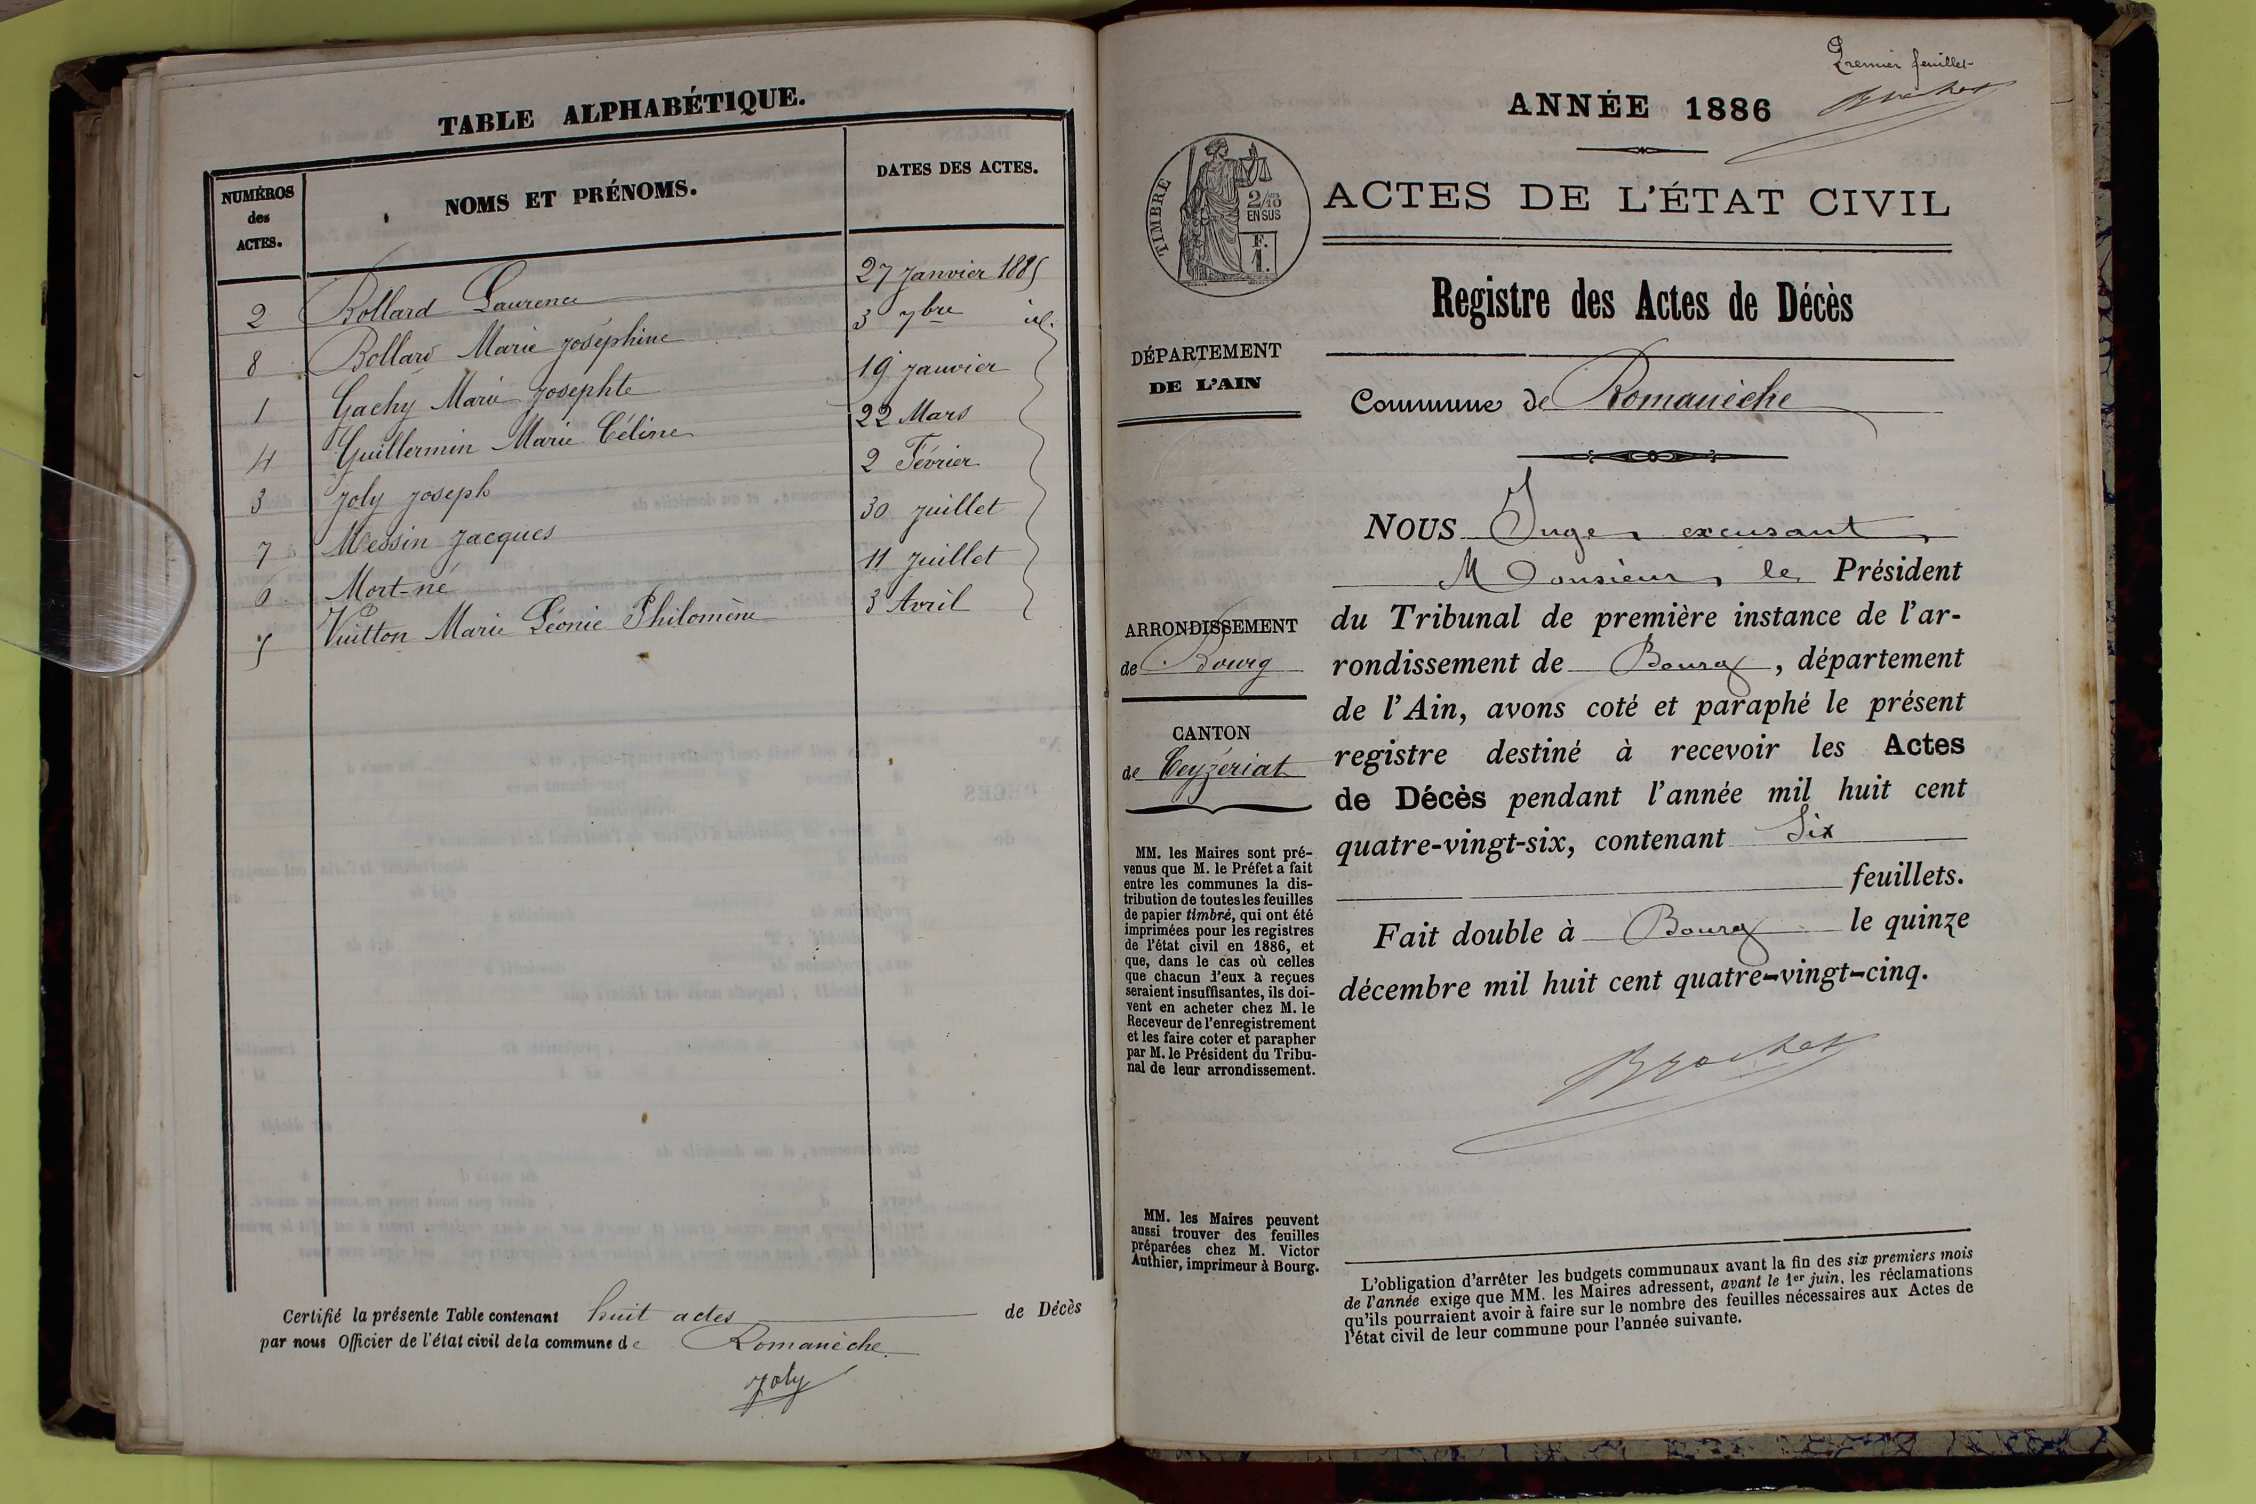 TABLE ALPHABÉTIQUE.
NUMÉROS des ACTES. NOMS ET PRÉNOMS. DATES DES ACTES.
2 Bollard Laurence 27 Janvier 1885
8 Bollard Marie Joséphine 3 7bre id.
1 Gachy Marie Josephte 19 Janvier
4 Guillermin Marie Céline 22 Mars
3 Joly Joseph 2 Février
7 Messin Jacques 30 Juillet
6 Mort-né 11 Juillet
5 Vuitton Marie Léonie Philomène 3 Avril
Certifié la présente Table contenant huit actes de Décès
par nous Officier de l'état civil de la commune de Romanèche
Joly
Premier feuillet
Brochet
ANNÉE 1886
TIMBRE
2/10
EN SUS
F.
1.
ACTES DE L'ÉTAT CIVIL
Registre des Actes de Décès
DÉPARTEMENT
DE L'AIN
Commune de Romanèche
ARRONDISSEMENT
de Bourg
CANTON
de Ceyzériat
MM. les Maires sont pré-
venus que M. le Préfet a fait
entre les communes la dis-
tribution de toutes les feuilles
de papier timbré, qui ont été
imprimées pour les registres
de l'état civil en 1886, et
que, dans le cas où celles
que chacun d'eux à reçues
seraient insuffisantes, ils doi-
vent en acheter chez M. le
Receveur de l'enregistrement
et les faire coter et parapher
par M. le Président du Tribu-
nal de leur arrondissement.
MM. les Maires peuvent
aussi trouver des feuilles
préparées chez M. Victor
Authier, imprimeur à Bourg.
NOUS Juge, excusant
Monsieur, le Président
du Tribunal de première instance de l'ar-
rondissement de Bourg, département
de l'Ain, avons coté et paraphé le présent
registre destiné à recevoir les Actes
de Décès pendant l'année mil huit cent
quatre-vingt-six, contenant Six
feuillets.
Fait double à Bourg le quinze
décembre mil huit cent quatre-vingt-cinq.
Brochet
L'obligation d'arrêter les budgets communaux avant la fin des six premiers mois
de l'année exige que MM. les Maires adressent, avant le 1er juin, les réclamations
qu'ils pourraient avoir à faire sur le nombre des feuilles nécessaires aux Actes de
l'état civil de leur commune pour l'année suivante.